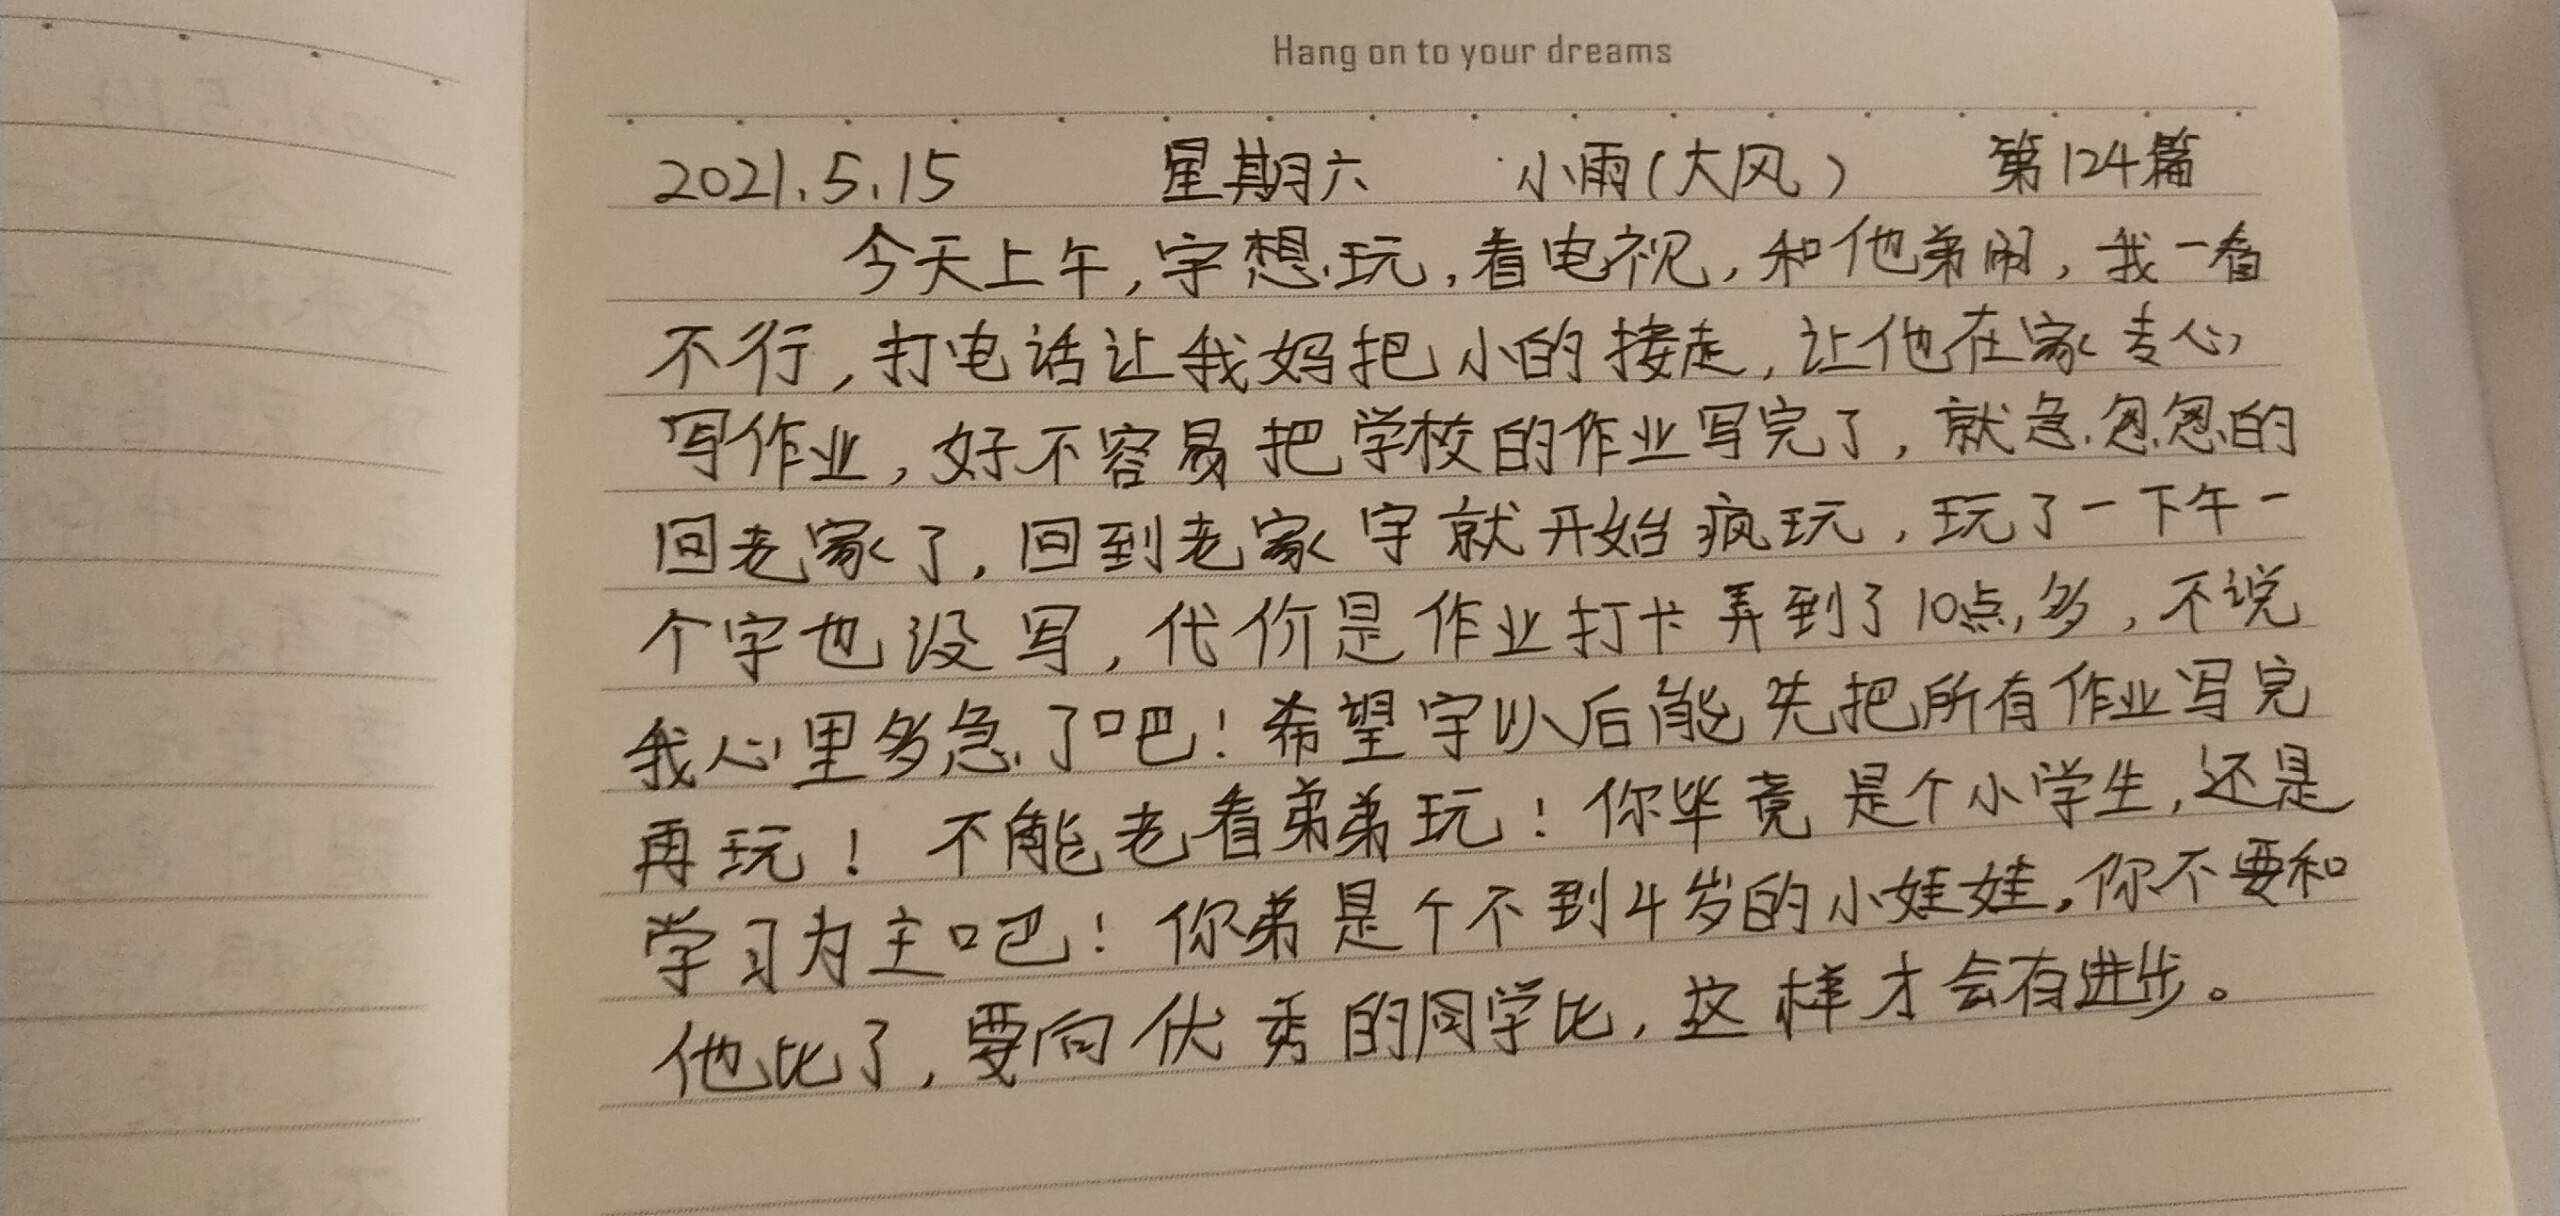 Hang on to your dreams
2021.5.15 星期六 小雨(大风) 第124篇
今天上午,宇想玩,看电视,和他弟闹,我一看
不行,打电话让我妈把小的接走,让他在家专心
写作业,好不容易把学校的作业写完了,就急忽忽的
回老家了,回到老家宇就开始疯玩,玩了一下午一
个字也没写,代价是作业打卡弄到了10点多,不说
我心里多急了吧!希望宇以后能先把所有作业写完
再玩!不能老看弟弟玩!你毕竟是个小学生,还是
学习为主吧!你弟是个不到4岁的小娃娃,你不要和
他比了,要向优秀的同学比,这样才会有进步。